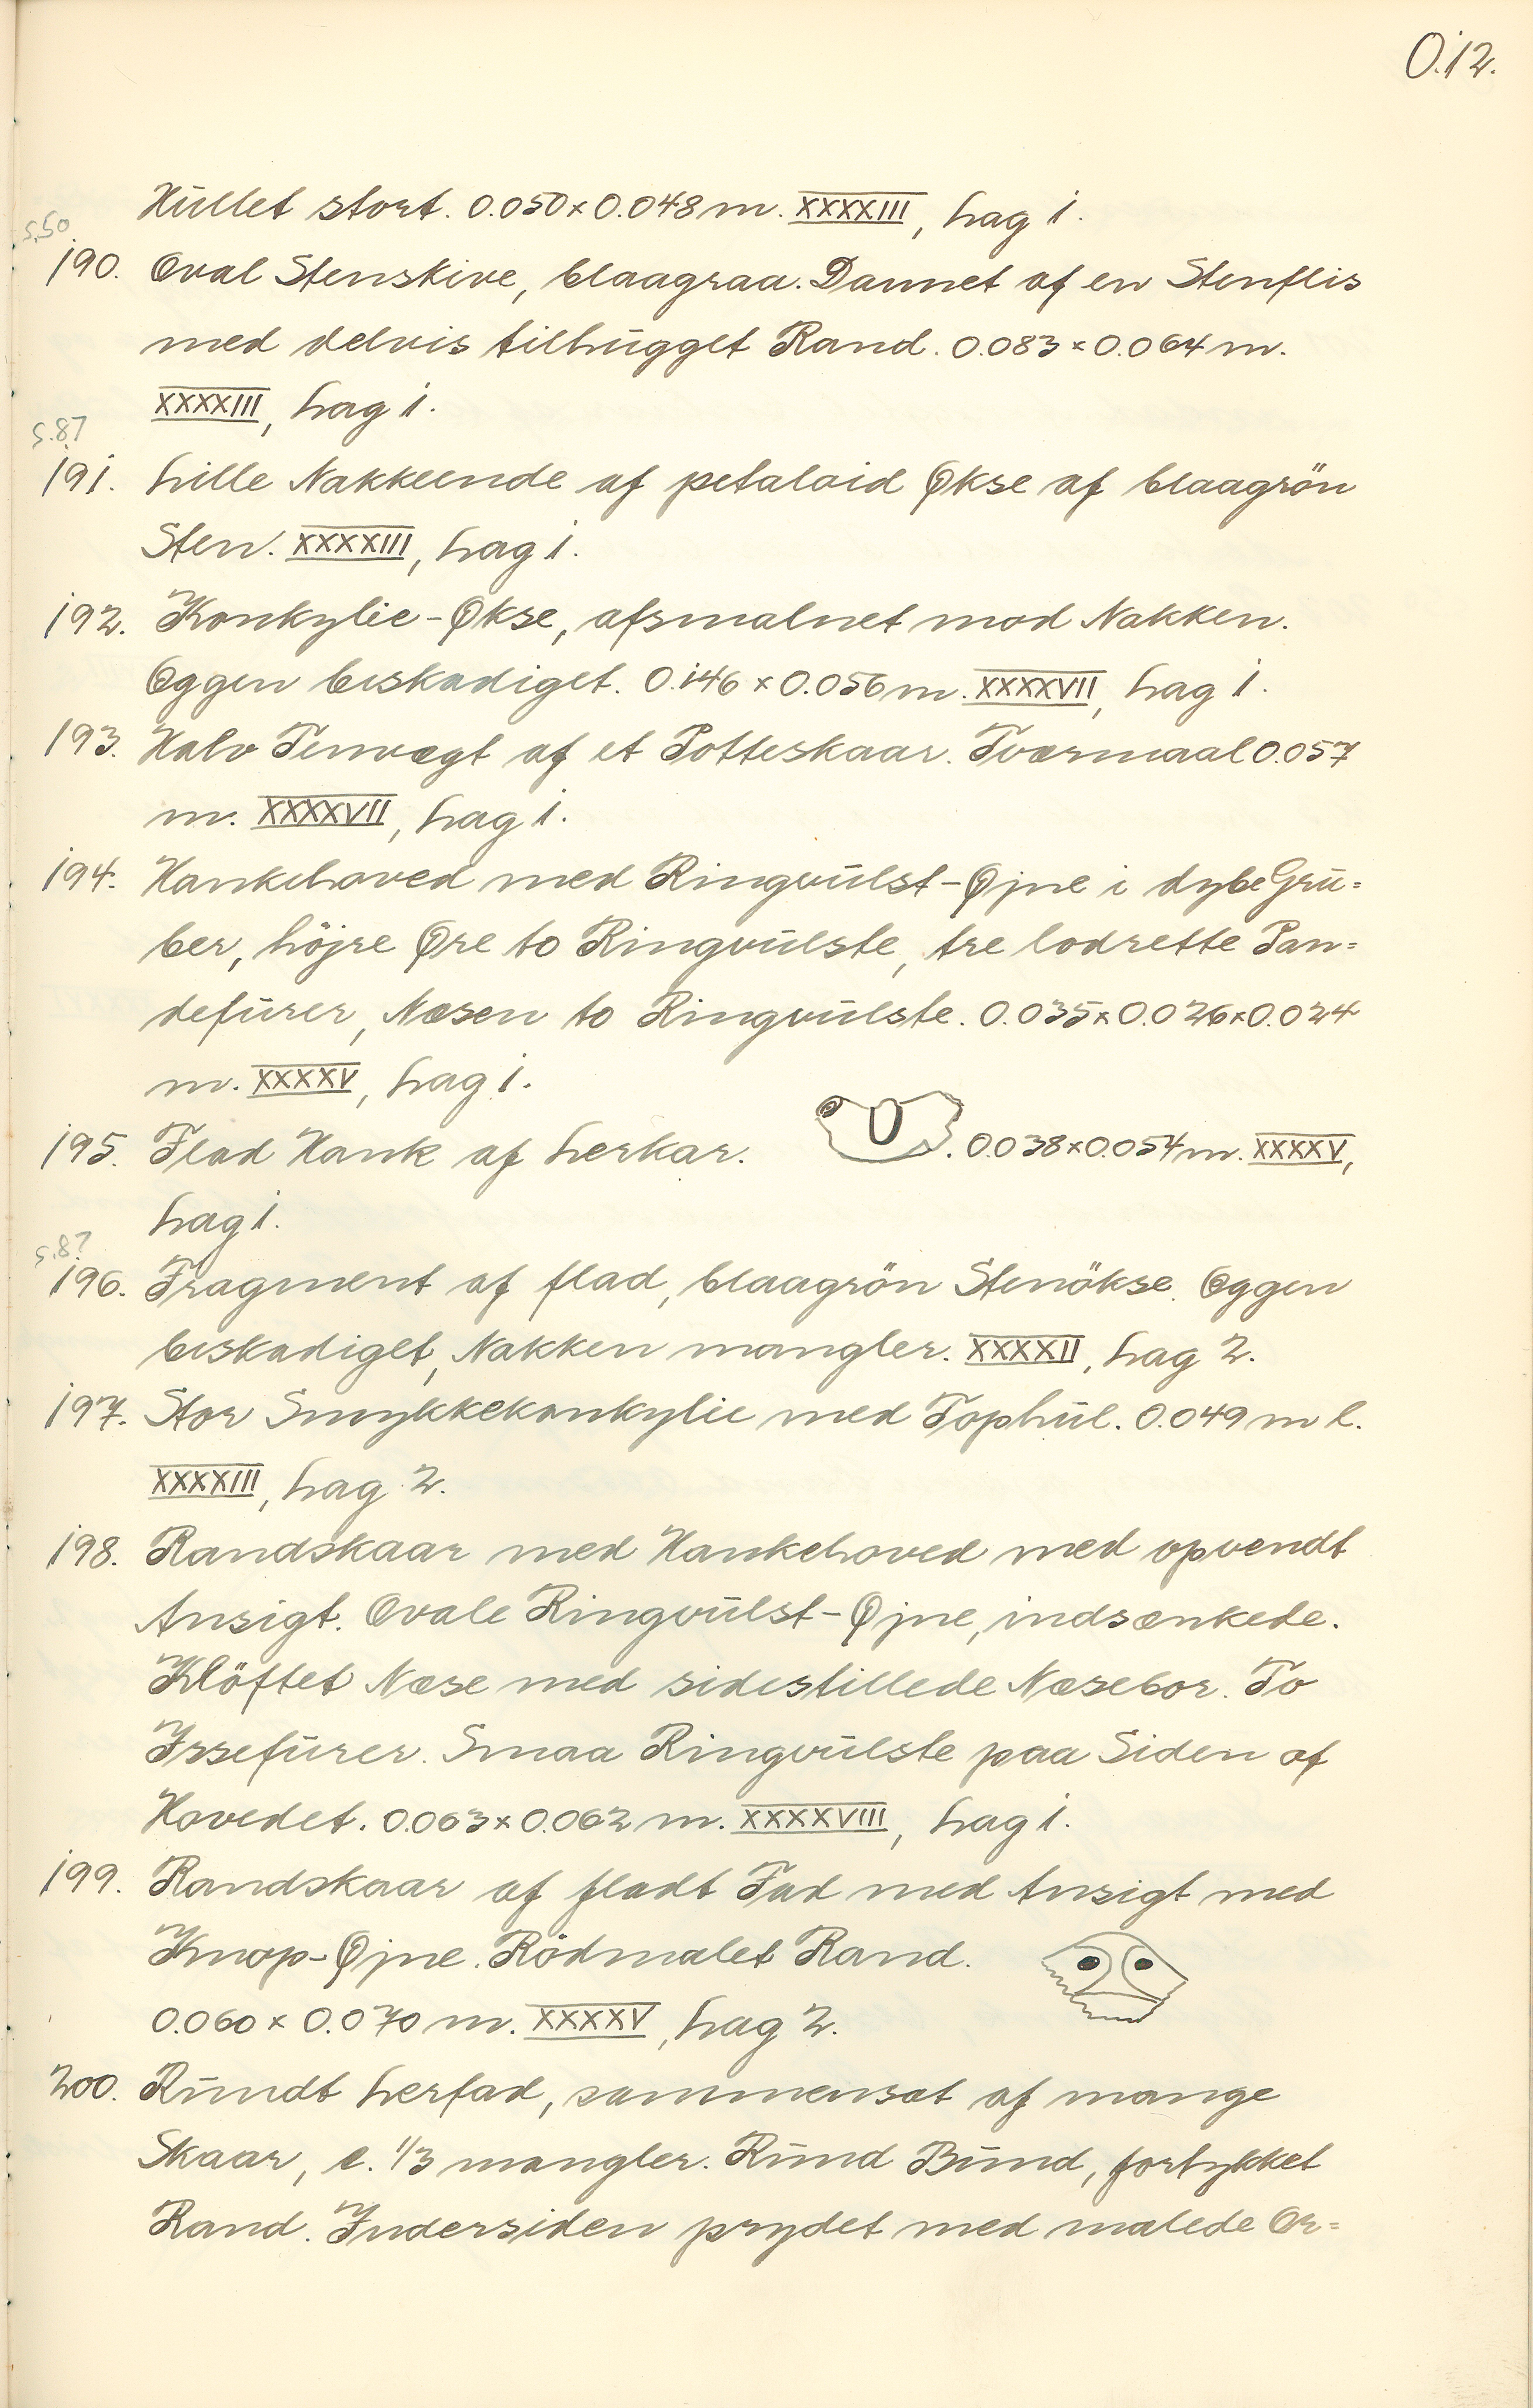 O.12.
Hullet stort. 0.050 x 0.048 m. XXXXIII, Lag 1.
S.50
190. Oval Stenskive, blaagraa. Dannet af en Stenflis
med delvis tilhugget Rand. 0.083 x 0.064 m.
XXXXIII, Lag 1.
S.87
191. Lille Nakkeende af petaloid Økse af blaagrön
Sten. XXXXIII, Lag 1.
192. Konkylie-Økse, afsmalnet mod Nakken.
Eggen beskadiget. 0.146 x 0.056 m. XXXXVII, Lag 1.
193. Halv Tenvægt af et Potteskaar. Tværmaal 0.057
m. XXXXVII, Lag 1.
194. Hankehoved med Ringvulst-Øjne i dybe Gru=
ber, höjre Øre to Ringvulste, tre lodrette Pan=
defurer, Næsen to Ringvulste. 0.035 x 0.026 x 0.024
m. XXXXV, Lag 1.
195. Flad Hank af Lerkar. . 0.038 x 0.054 m. XXXXV,
Lag 1.
S.87
196. Fragment af flad, blaagrön Stenökse. Eggen
beskadiget, Nakken mangler. XXXXII, Lag 2.
197. Stor Smykkekonkylie med Tophul. 0.049 m l.
XXXXIII, Lag 2.
198. Randskaar med Hankehoved med opvendt
Ansigt. Ovale Ringvulst-Øjne, indsænkede.
Klöftet Næse med sidestillede Næsebor. To
Issefurer. Smaa Ringvulste paa Siden af
Hovedet. 0.063 x 0.062 m. XXXXVIII, Lag 1.
199. Randskaar af fladt Fad med Ansigt med
Knop-Øjne. Rödmalet Rand.
0.060 x 0.070 m. XXXXV, Lag 2.
200. Rundt Lerfad, sammensat af mange
Skaar, c. 1/3 mangler. Rund Bund, fortykket
Rand. Indersiden prydet med malede Or=